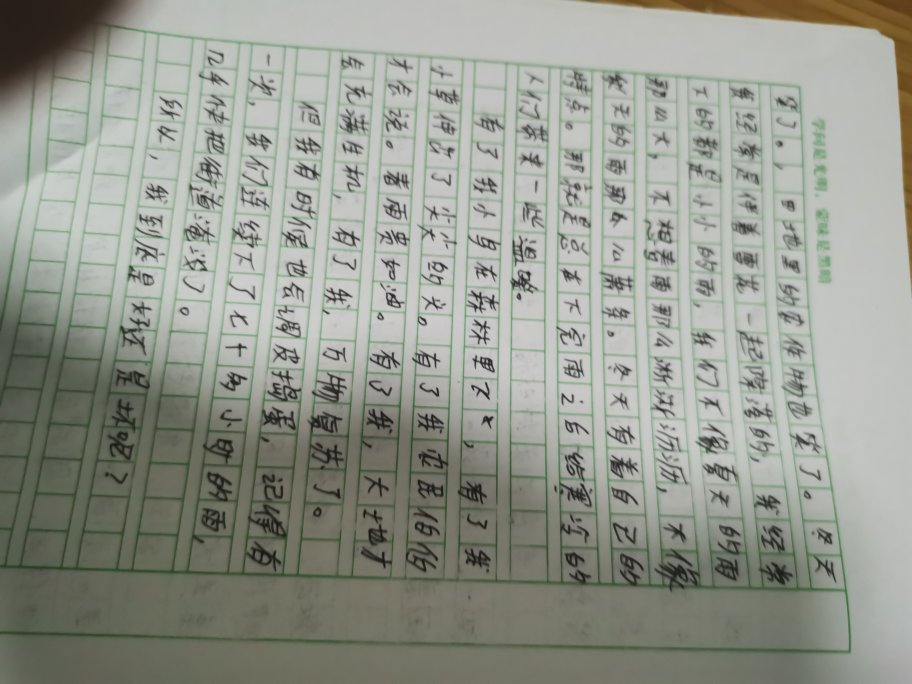 学科是光明，蒙昧是黑暗
笑了。，田地里的农作物也笑了。冬天
我经常是伴着雪花一起降落的，我经常
下的都是小小的雨，我们不像夏天的雨
那么大，不想春雨那么淅淅沥沥，不像
秋天的雨那么凉。冬天有着自己的
特点。那就是总在下完雨之后给寒冷的
人们带来一些温暖。
有了我小鸟在森林里飞，有了我
小草伸出了尖尖的头。有了我农民伯伯
才会说。春雨贵如油。有了我，大地才
会充满生机，有了我，万物复苏了。
但我有时候也会调皮捣蛋，记得有
一次，我们连续下了七十多小时的雨，
几乎快把街道淹没了。
所以，我到底是好还是坏呢？